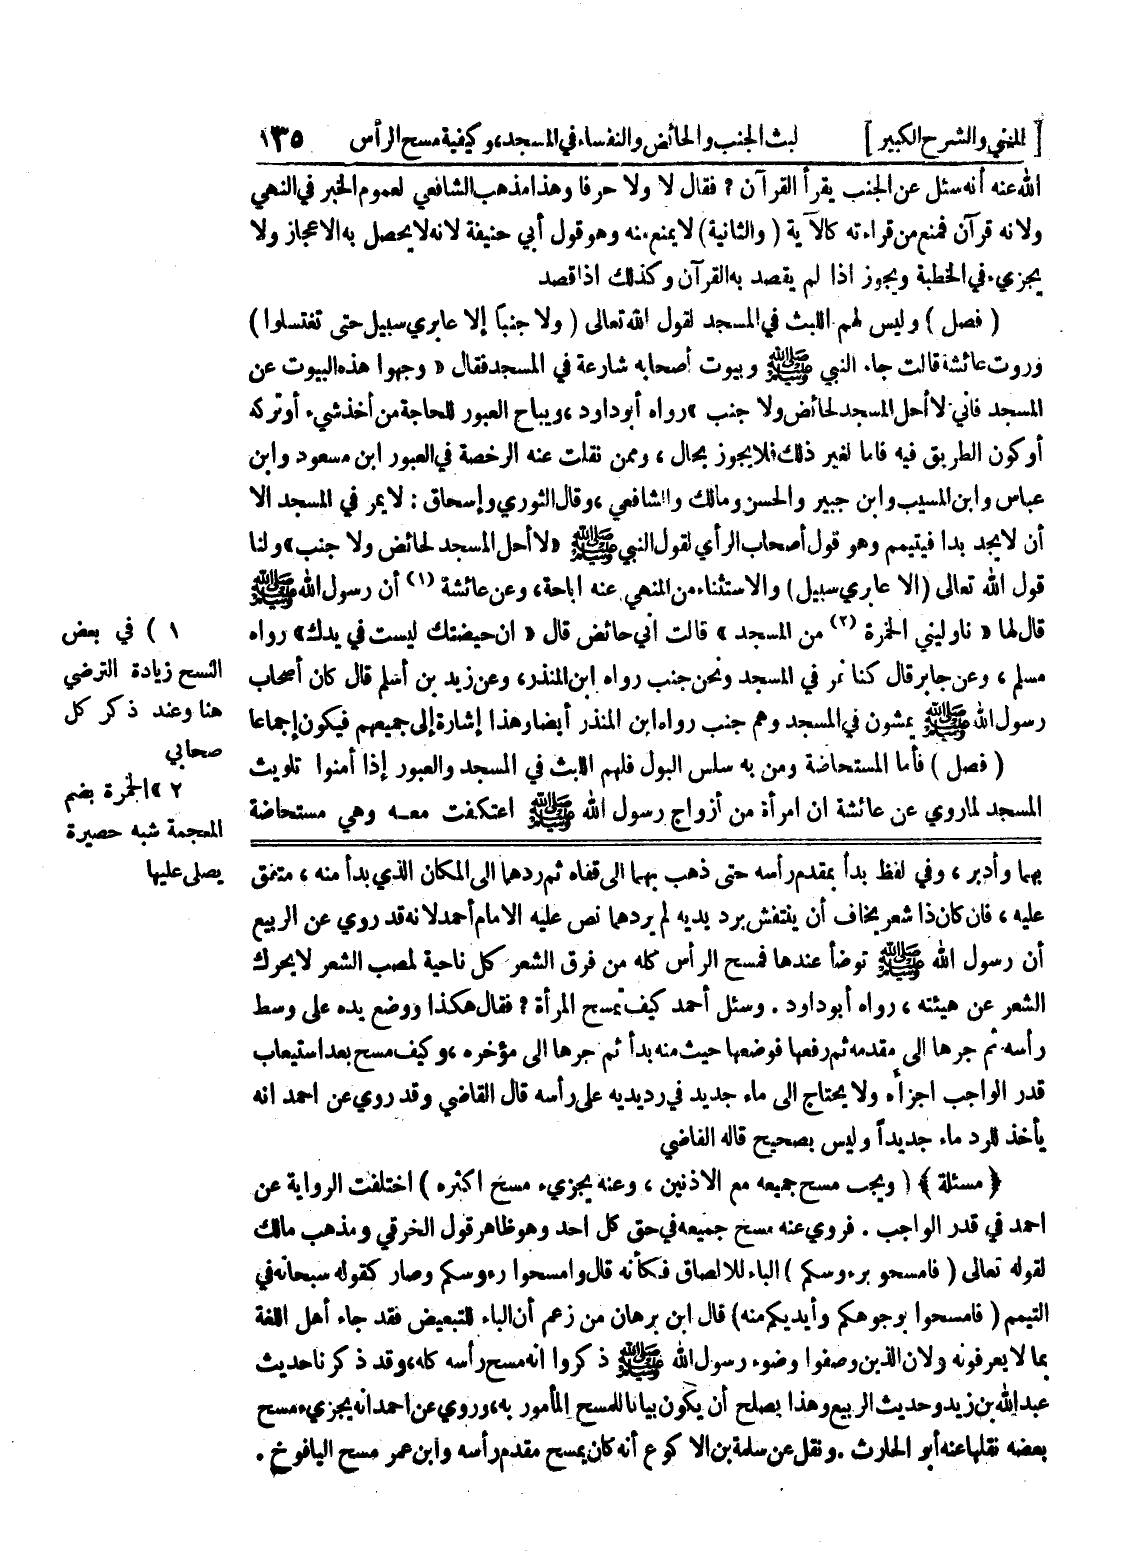 [ المغني والشرح الكبير ] لبث الجنب والحائض والنفساء في المسجد، وكيفية مسح الرأس ١٣٥
الله عنه أنه سئل عن الجنب يقرأ القرآن ؟ فقال لا ولا حرفا وهذا مذهب الشافعي لعموم الخبر في النهي
ولانه قرآن فمنع من قراءته كالآية ( والثانية ) لا يمنع منه وهو قول أبي حنيفة لانه لا يحصل به الاعجاز ولا
يجزيء في الخطبة ويجوز اذا لم يقصد به القرآن وكذلك اذا قصد
( فصل ) وليس لهم اللبث في المسجد لقول الله تعالى ( ولا جنباً إلا عابري سبيل حتى تغتسلوا )
وروت عائشة قالت جاء النبي ﷺ وبيوت أصحابه شارعة في المسجد فقال « وجهوا هذه البيوت عن
المسجد فاني لا أحل المسجد لحائض ولا جنب » رواه أبو داود ، ويباح العبور للحاجة من أخذ شيء أو تركه
أو كون الطريق فيه فاما لغير ذلك فلا يجوز بحال ، وممن نقلت عنه الرخصة في العبور ابن مسعود وابن
عباس وابن المسيب وابن جبير والحسن ومالك والشافعي ، وقال الثوري وإسحاق : لا يمر في المسجد الا
أن لا يجد بدا فيتيمم وهو قول أصحاب الرأي لقول النبي ﷺ «لا أحل المسجد لحائض ولا جنب» ولنا
قول الله تعالى (الا عابري سبيل) والاستثناء من المنهي عنه اباحة، وعن عائشة (١) أن رسول الله ﷺ
قال لها « ناوليني الخمرة (٢) من المسجد » قالت اني حائض قال « ان حيضتك ليست في يدك» رواه
مسلم ، وعن جابر قال كنا نمر في المسجد ونحن جنب رواه ابن المنذر، وعن زيد بن أسلم قال كان أصحاب
رسول الله ﷺ يمشون في المسجد وهم جنب رواه ابن المنذر أيضا وهذا إشارة إلى جميعهم فيكون إجماعا
( فصل ) فأما المستحاضة ومن به سلس البول فلهم اللبث في المسجد والعبور إذا أمنوا تلويث
المسجد لما روي عن عائشة ان امرأة من أزواج رسول الله ﷺ اعتكفت معه وهي مستحاضة
١ ) في بعض
النسخ زيادة الترضي
هنا وعند ذكر كل
صحابي
٢ » الخمرة بضم
المعجمة شبه حصيرة
يصلى عليها
بهما وأدبر ، وفي لفظ بدأ بمقدم رأسه حتى ذهب بهما الى قفاه ثم ردهما الى المكان الذي بدأ منه ، متفق
عليه ، فان كان ذا شعر يخاف أن ينتفش برد يديه لم يردهما نص عليه الامام أحمد لانه قد روي عن الربيع
أن رسول الله ﷺ توضأ عندها فمسح الرأس كله من فرق الشعر كل ناحية لمصب الشعر لا يحرك
الشعر عن هيئته ، رواه أبو داود . وسئل أحمد كيف تمسح المرأة ؟ فقال هكذا ووضع يده على وسط
رأسه ثم جرها الى مقدمه ثم رفعها فوضعها حيث منه بدأ ثم جرها الى مؤخره ، وكيف مسح بعد استيعاب
قدر الواجب اجزأه ولا يحتاج الى ماء جديد في رد يديه على رأسه قال القاضي وقد روي عن احمد انه
يأخذ للرد ماء جديداً وليس بصحيح قاله القاضي
﴿ مسئلة ﴾ ( ويجب مسح جميعه مع الاذنين ، وعنه يجزيء مسح اكثره ) اختلفت الرواية عن
احمد في قدر الواجب . فروي عنه مسح جميعه في حق كل احد وهو ظاهر قول الخرقي ومذهب مالك
لقوله تعالى ( فامسحو برءوسكم ) الباء للالصاق فكأنه قال وامسحوا رءوسكم وصار كقوله سبحانه في
التيمم ( فامسحوا بوجوهكم وأيديكم منه) قال ابن برهان من زعم أن الباء للتبعيض فقد جاء أهل اللغة
بما لا يعرفونه ولان الذين وصفوا وضوء رسول الله ﷺ ذكروا انه مسح رأسه كله، وقد ذكرنا حديث
عبد الله بن زيد وحديث الربيع وهذا يصلح أن يكون بيانا للمسح المأمور به، وروي عن احمد انه يجزيء مسح
بعضه نقلها عنه أبو الحارث . ونقل عن سلمة بن الاكوع أنه كان يمسح مقدم رأسه وابن عمر مسح اليافوخ .